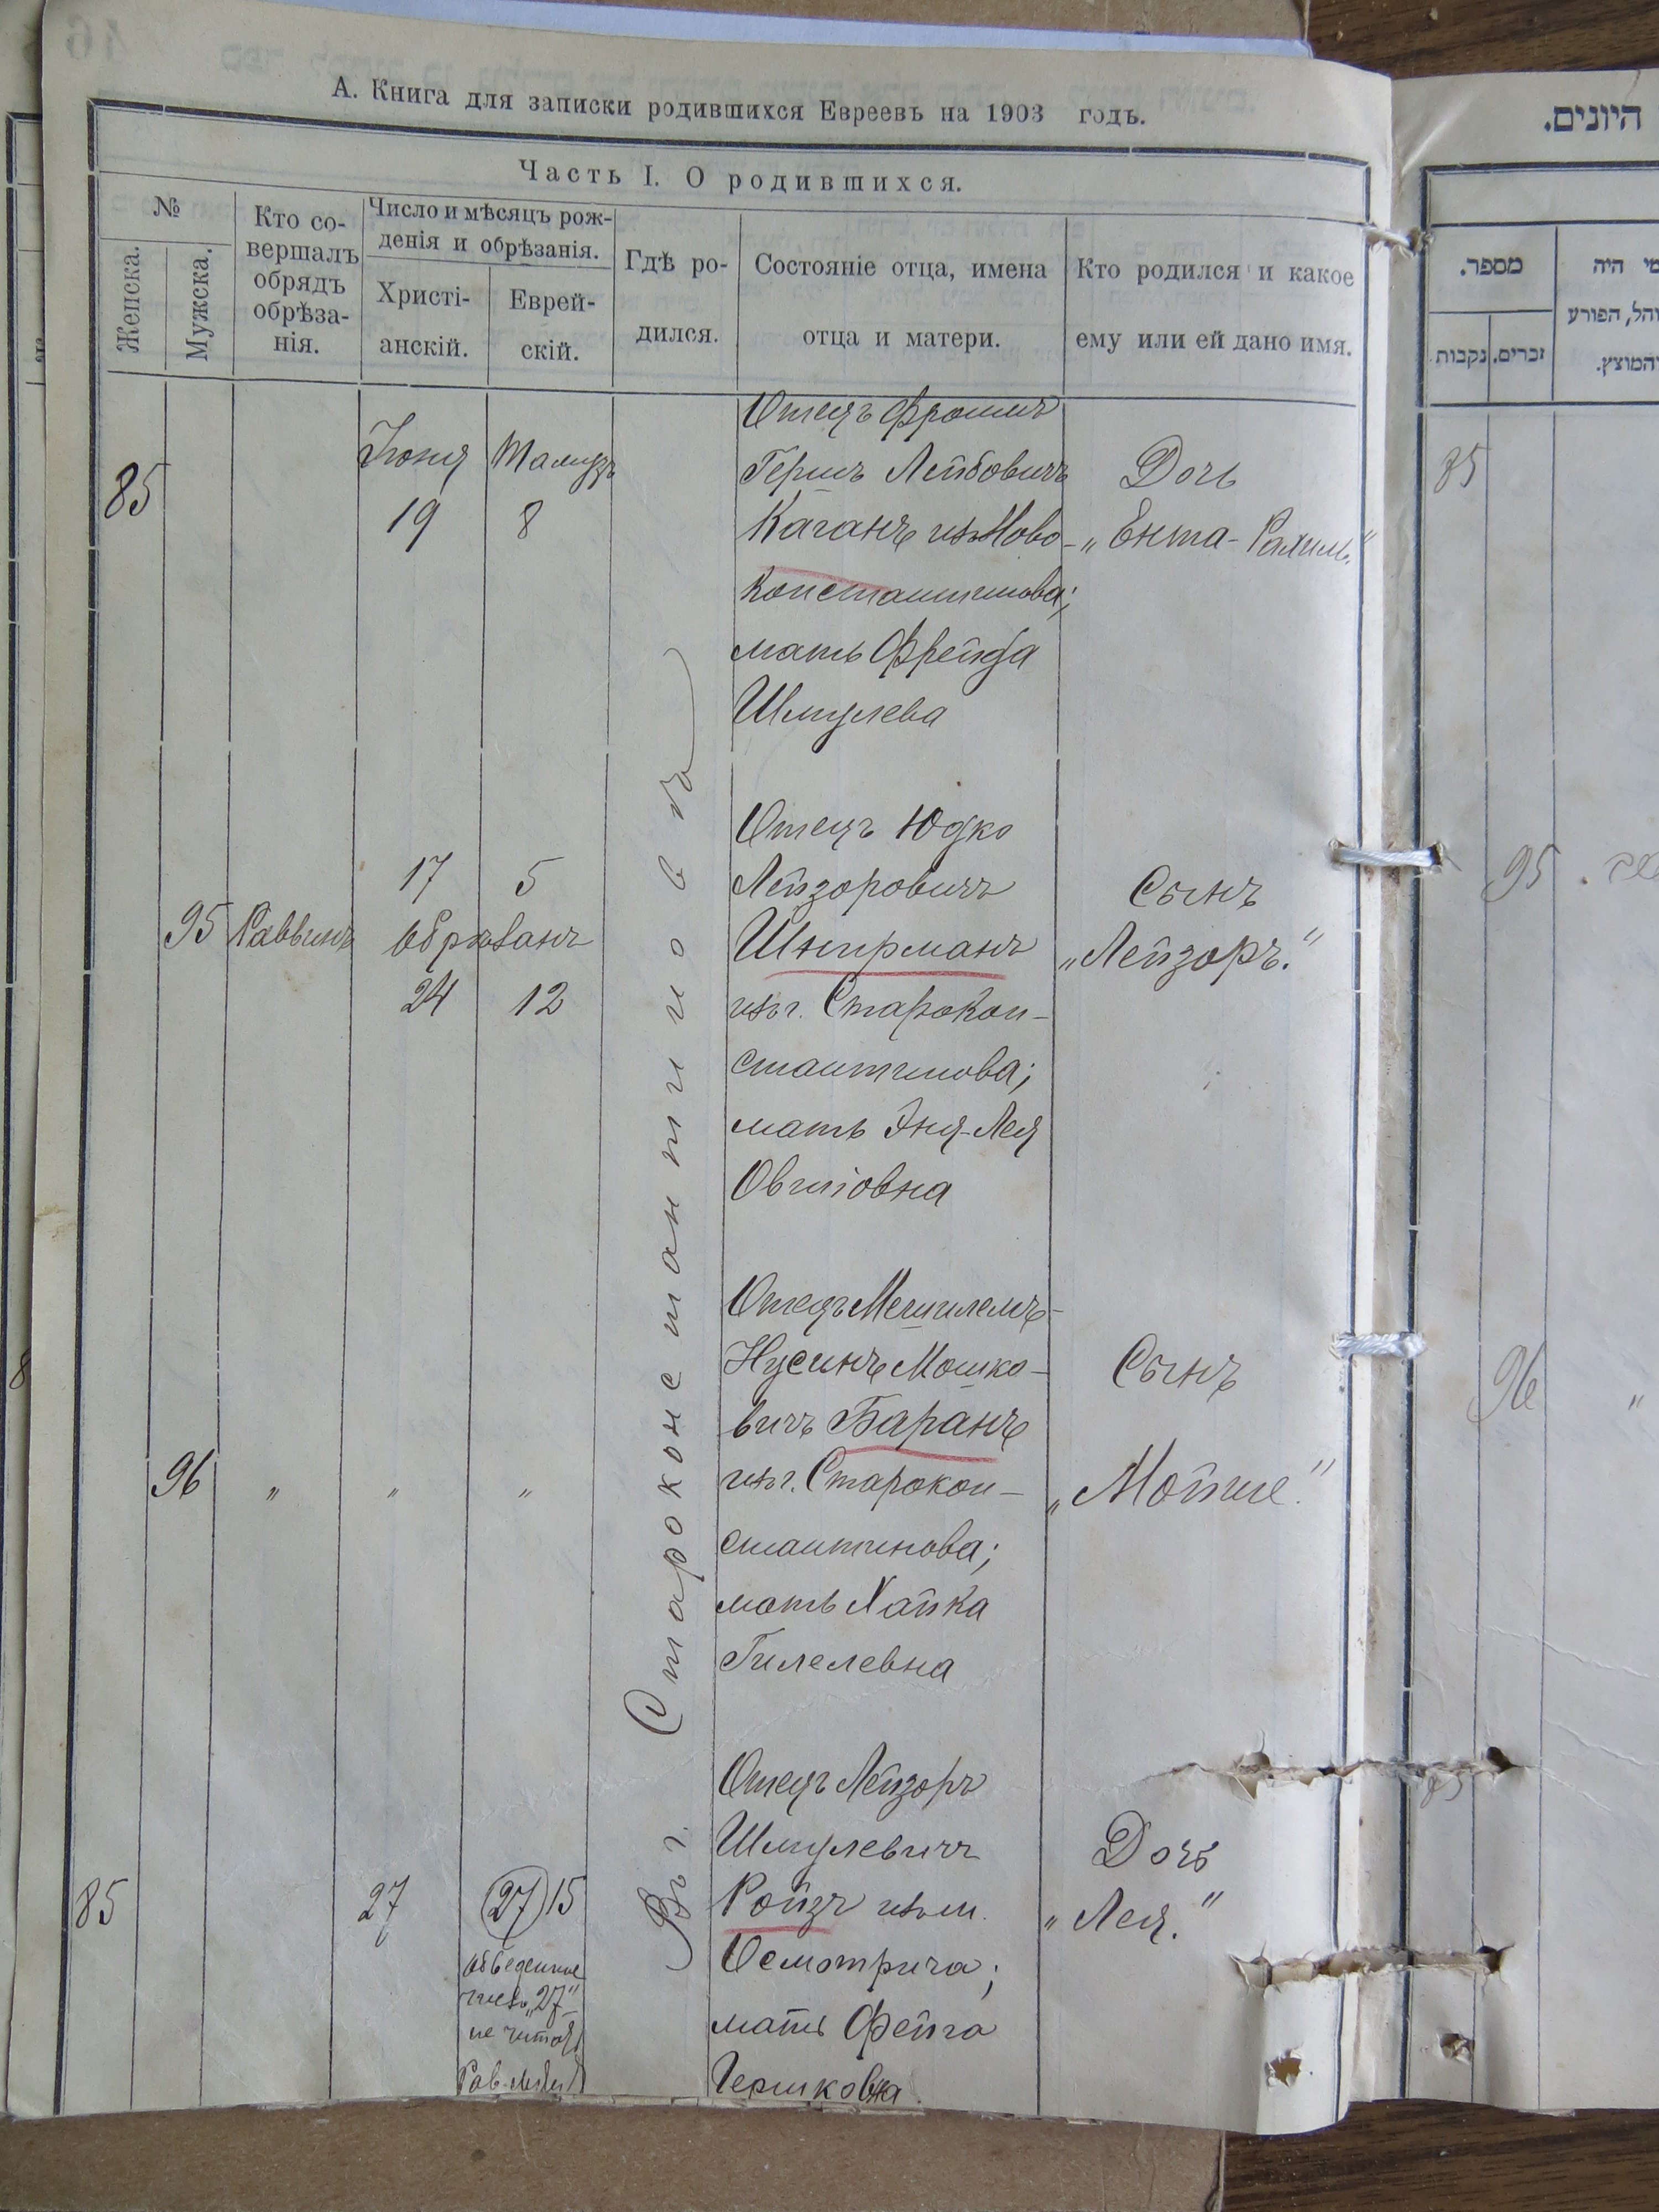 А. Книга для записки родившихся Евреевъ на 1903 годъ.
Часть I. О родившихся.
№
Женска.
Мужска.
Кто со-
вершалъ
обрядъ
обрѣза-
нія.
Число и мѣсяцъ рож-
денія и обрѣзанія.
Христі-
анскій.
Еврей-
скій.
Гдѣ ро-
дился.
Состояніе отца, имена
отца и матери.
Кто родился и какое
ему или ей дано имя.
85
Іюня
19
Тамузъ
8
Отецъ Фроимъ
Гершъ Лейбовичъ
Каганъ изъ Ново-
константинова;
мать Фрейда
Шмулева
Дочь
„Ента-Рахиль"
Въ г. Староконстантиновѣ
95 Раввинъ
17 5
обрѣзанъ
24 12
Отецъ Юдко
Лейзоровичъ
Шнирманъ
изъ г. Старокон-
стантинова;
мать Эня-Лея
Овшіовна
Сынъ
„Лейзоръ."
96 „ „ „
Отецъ Мешилемъ-
Нусинъ Мошко-
вичъ Баранъ
изъ г. Старокон-
стантинова;
мать Хайка
Гилелевна
Сынъ
„Мойше."
85
27
(27) 15
обведенное
число „27"
не читать
Отецъ Лейзоръ
Шмулевичъ
Ройзъ изъ м.
Осмотрича;
мать Фейга
Гершковна.
Дочь
„Лея."
היונים.
מספר.
נקבות
זכרים.
מי היה
והל, הפורע
והמוצץ.
85
95
96 „
85